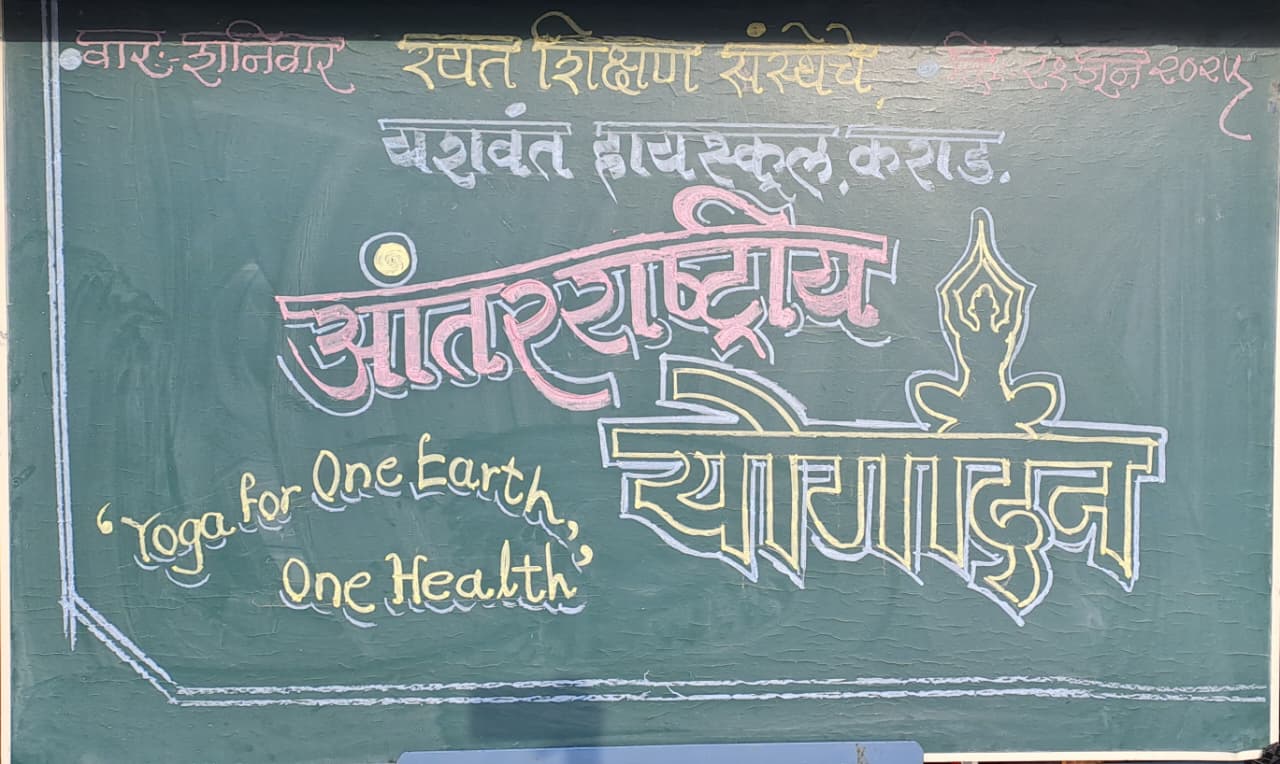 वार:- शनिवार रयत शिक्षण संस्थेचे, दि. २१ जून २०२५
यशवंत हायस्कूल, कराड.
आंतरराष्ट्रीय
योगादिन
'Yoga for One Earth,
One Health'